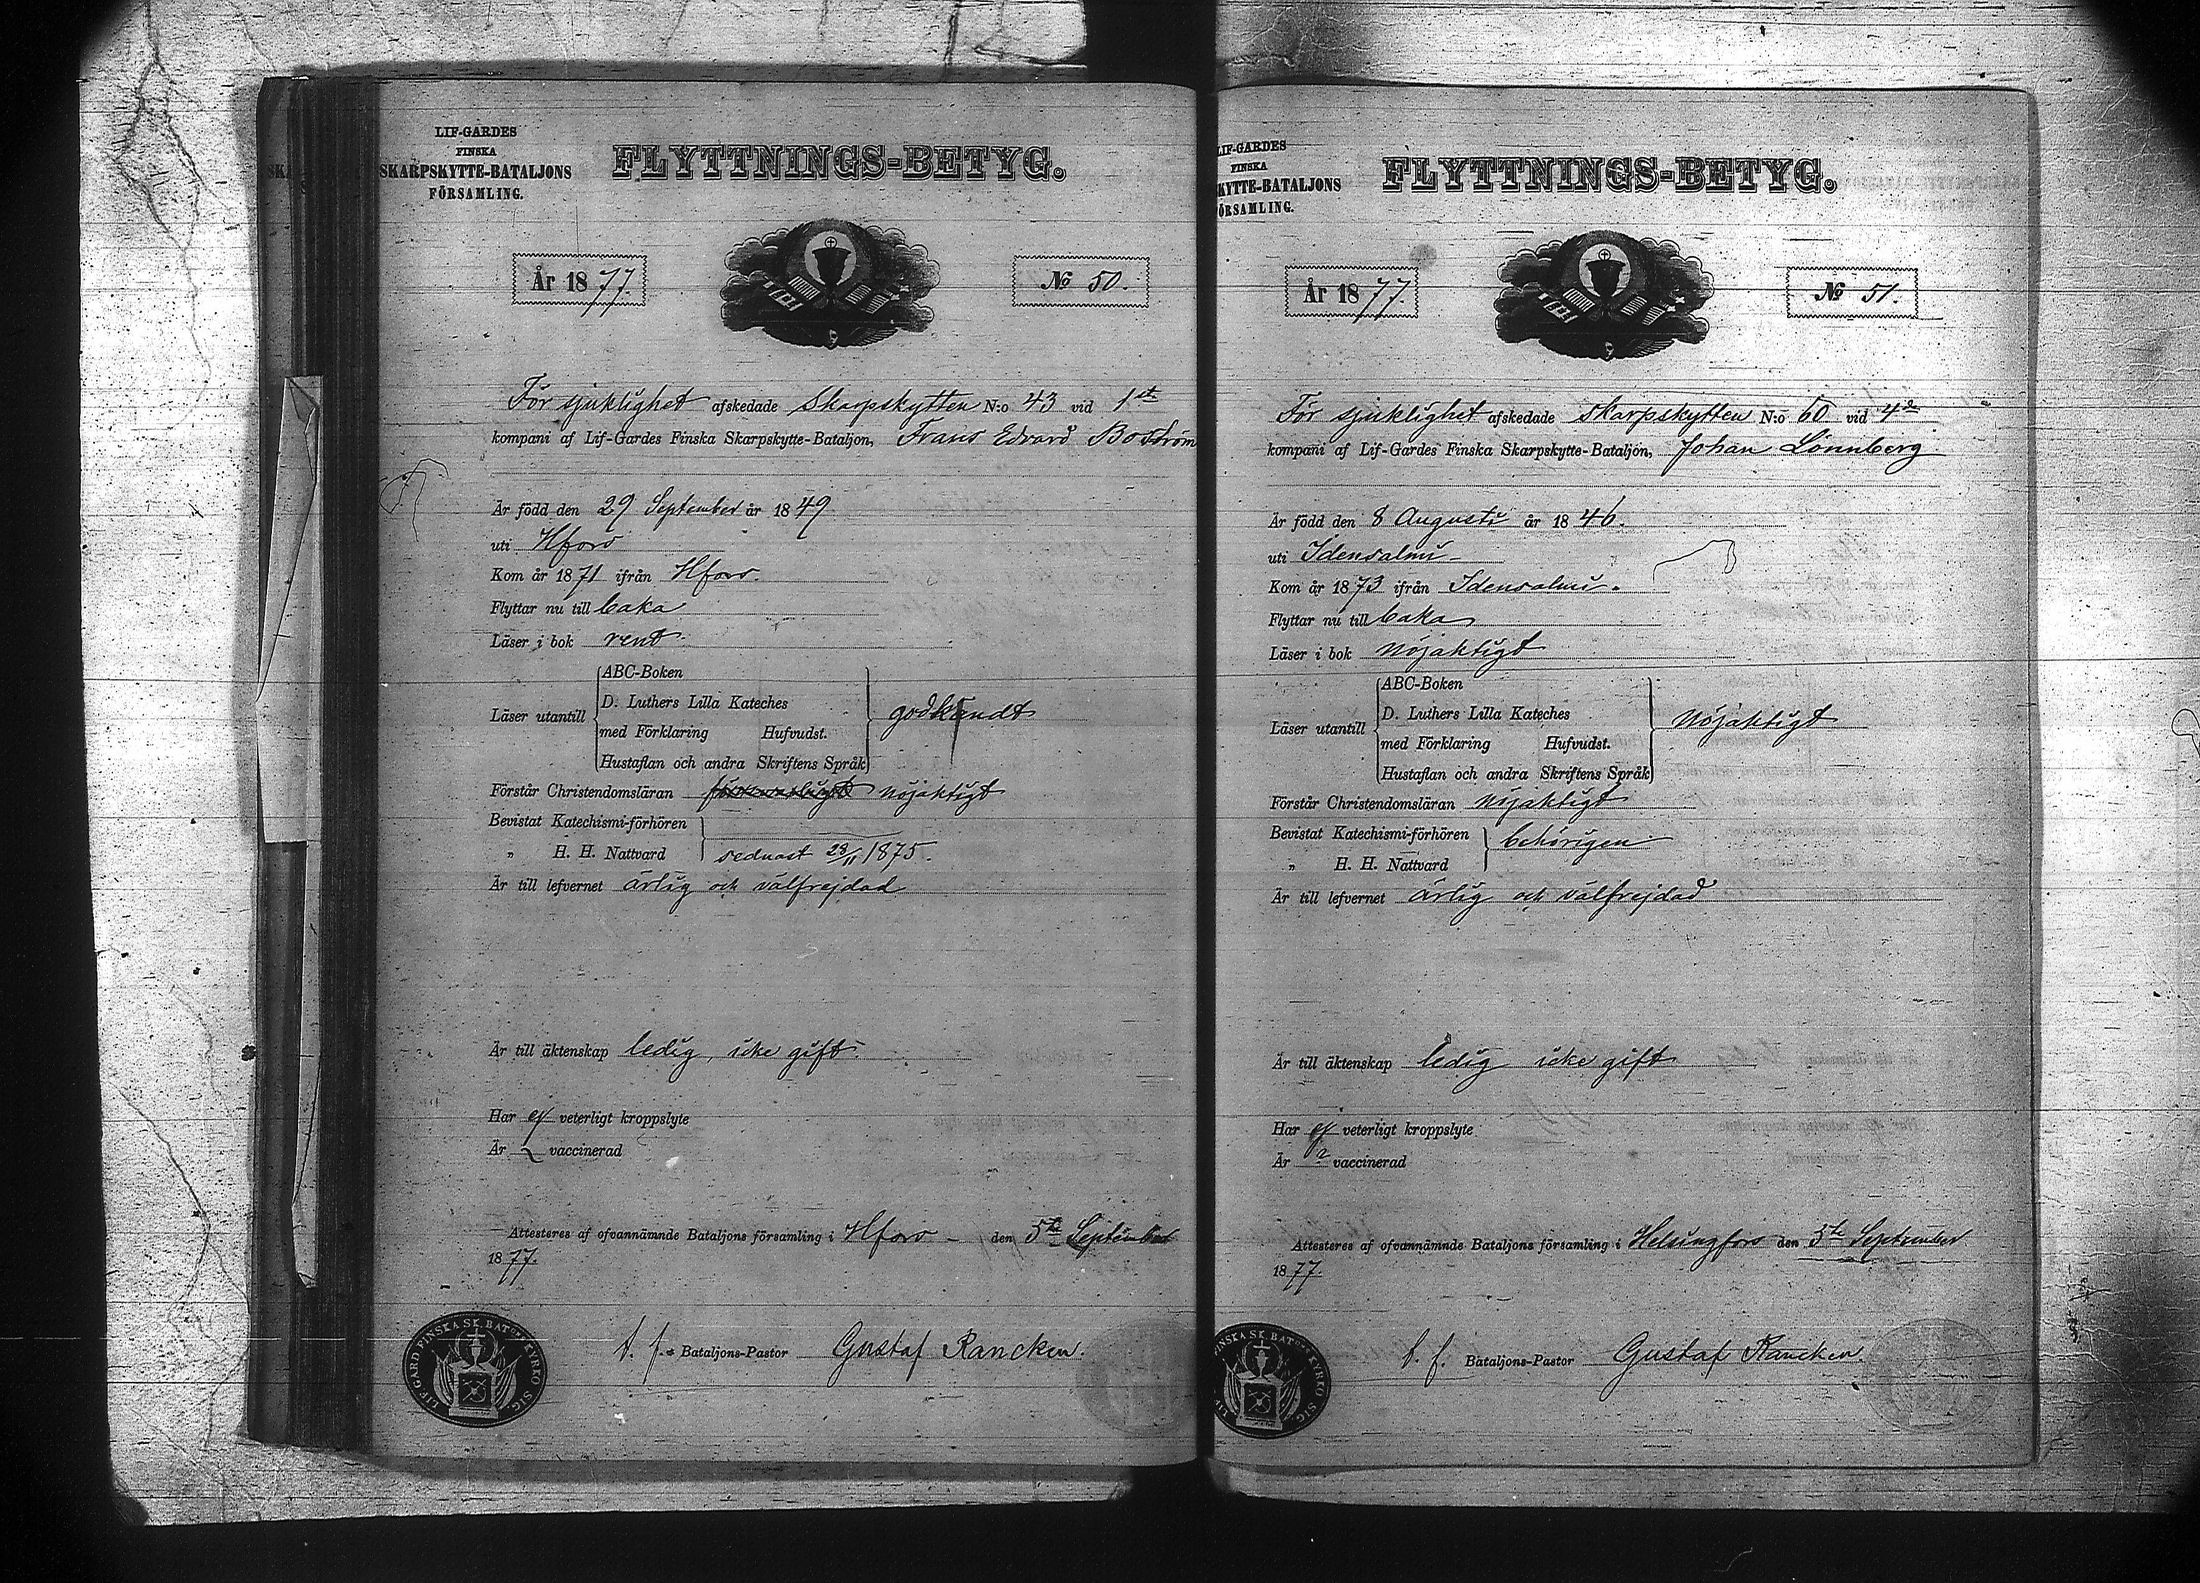 LIF-GARDES
FINSKA
SKARPSKYTTE-BATALJONS
FÖRSAMLING.
FLYTTNINGS-BETYG.
År 1877.
No 50.
För sjuklighet afskedade Skarpskytten N:o 43 vid 1sta
kompani af Lif-Gardes Finska Skarpskytte-Bataljon, Frans Edvard Boström
Är född den 29 September år 1849
uti Hfors
Kom år 1871 ifrån Hfors.
Flyttar nu till baka
Läser i bok rent.
ABC-Boken
D. Luthers Lilla Kateches
Läser utantill godkändt
med Förklaring Hufvudst.
Hustaflan och andra Skriftens Språk
Förstår Christendomsläran nöjaktigt
Bevistat Katechismi-förhören
„ H. H. Nattvard sednast 28/11 1875.
Är till lefvernet ärlig och välfrejdad
Är till äktenskap ledig, icke gift.
Har ej veterligt kroppslyte
Är vaccinerad
Attesteres af ofvannämnde Bataljons församling i Hfors - den 5te September
1877.
t. f. Bataljons-Pastor Gustaf Rancken.
LIF-GARD FINSKA SK. BATONS KYRKO SIG.
LIF-GARDES
FINSKA
KYTTE-BATALJONS
ÖRSAMLING.
FLYTTNINGS-BETYG.
År 1877.
No 51.
För sjuklighet afskedade skarpskytten N:o 60 vid 4de
kompani af Lif-Gardes Finska Skarpskytte-Bataljon, Johan Lönnberg
Är född den 8 Augusti år 1846.
uti Idensalmi -
Kom år 1873 ifrån Idensalmi.
Flyttar nu till baka
Läser i bok nöjaktigt
ABC-Boken
D. Luthers Lilla Kateches
Läser utantill nöjaktigt
med Förklaring Hufvudst.
Hustaflan och andra Skriftens Språk
Förstår Christendomsläran nöjaktigt
Bevistat Katechismi-förhören behörigen
„ H. H. Nattvard
Är till lefvernet ärlig och välfrejdad
Är till äktenskap ledig icke gift
Har ej veterligt kroppslyte
Är vaccinerad
Attesteres af ofvannämnde Bataljons församling i Helsingfors den 5te September
1877.
t. f. Bataljons-Pastor Gustaf Rancken.
FINSKA SK. BATONS KYRKO SIG.